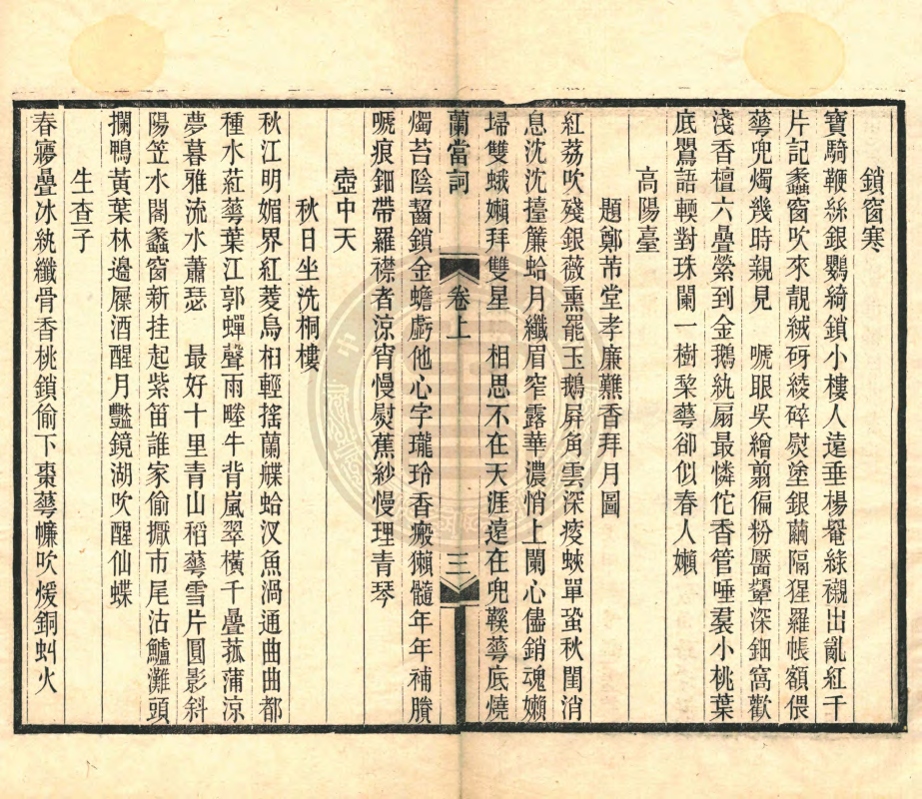 鎖窗寒
寶騎鞭絲銀鸚綺鎖小樓人遠垂楊罨綠襯出亂紅千
片記蠡窗吹來靚絨砑綾碎熨塗銀繭隔猩羅帳額偎
蕚兜燭幾時親見　嗁眼吳繒翦偏粉靨顰深鈿窩歡
淺香檀六疊縈到金鵝紈扇最憐佗香管唾裠小桃葉
底鸎語輭對珠闌一樹棃蕚卻似春人嬾
高陽臺
題鄭芾堂孝廉爇香拜月圖
紅荔吹殘銀薇熏罷玉鵝屏角雲深痠蛺單蛩秋閨消
息沈沈擡簾蛤月纖眉窄露華濃悄上闌心儘銷魂嬾
埽雙蛾嬾拜雙星　相思不在天涯遠在兜鞵蕚底燒
蘭當詞　卷上　三
燭苔陰齧鎖金蟾虧他心字瓏玲香瘢獺髓年年補賸
嗁痕鈿帶羅襟者涼宵慢熨蕉紗慢理青琴
壺中天
秋日坐洗桐樓
秋江明媚界紅菱烏桕輕搖蘭艓蛤汊魚渦通曲曲都
種水葒蕚葉江郭蟬聲雨疄牛背嵐翠橫千疊菰蒲涼
夢暮雅流水蕭瑟　最好十里青山稻蕚雪片圓影斜
陽笠水閣蠡窗新挂起紫笛誰家偷擫市尾沽鱸灘頭
攔鴨黃葉林邊屧酒醒月豔鏡湖吹醒仙蝶
生查子
春寱疊冰紈纖骨香桃鎖偷下棗蕚㡘吹煖銅虯火